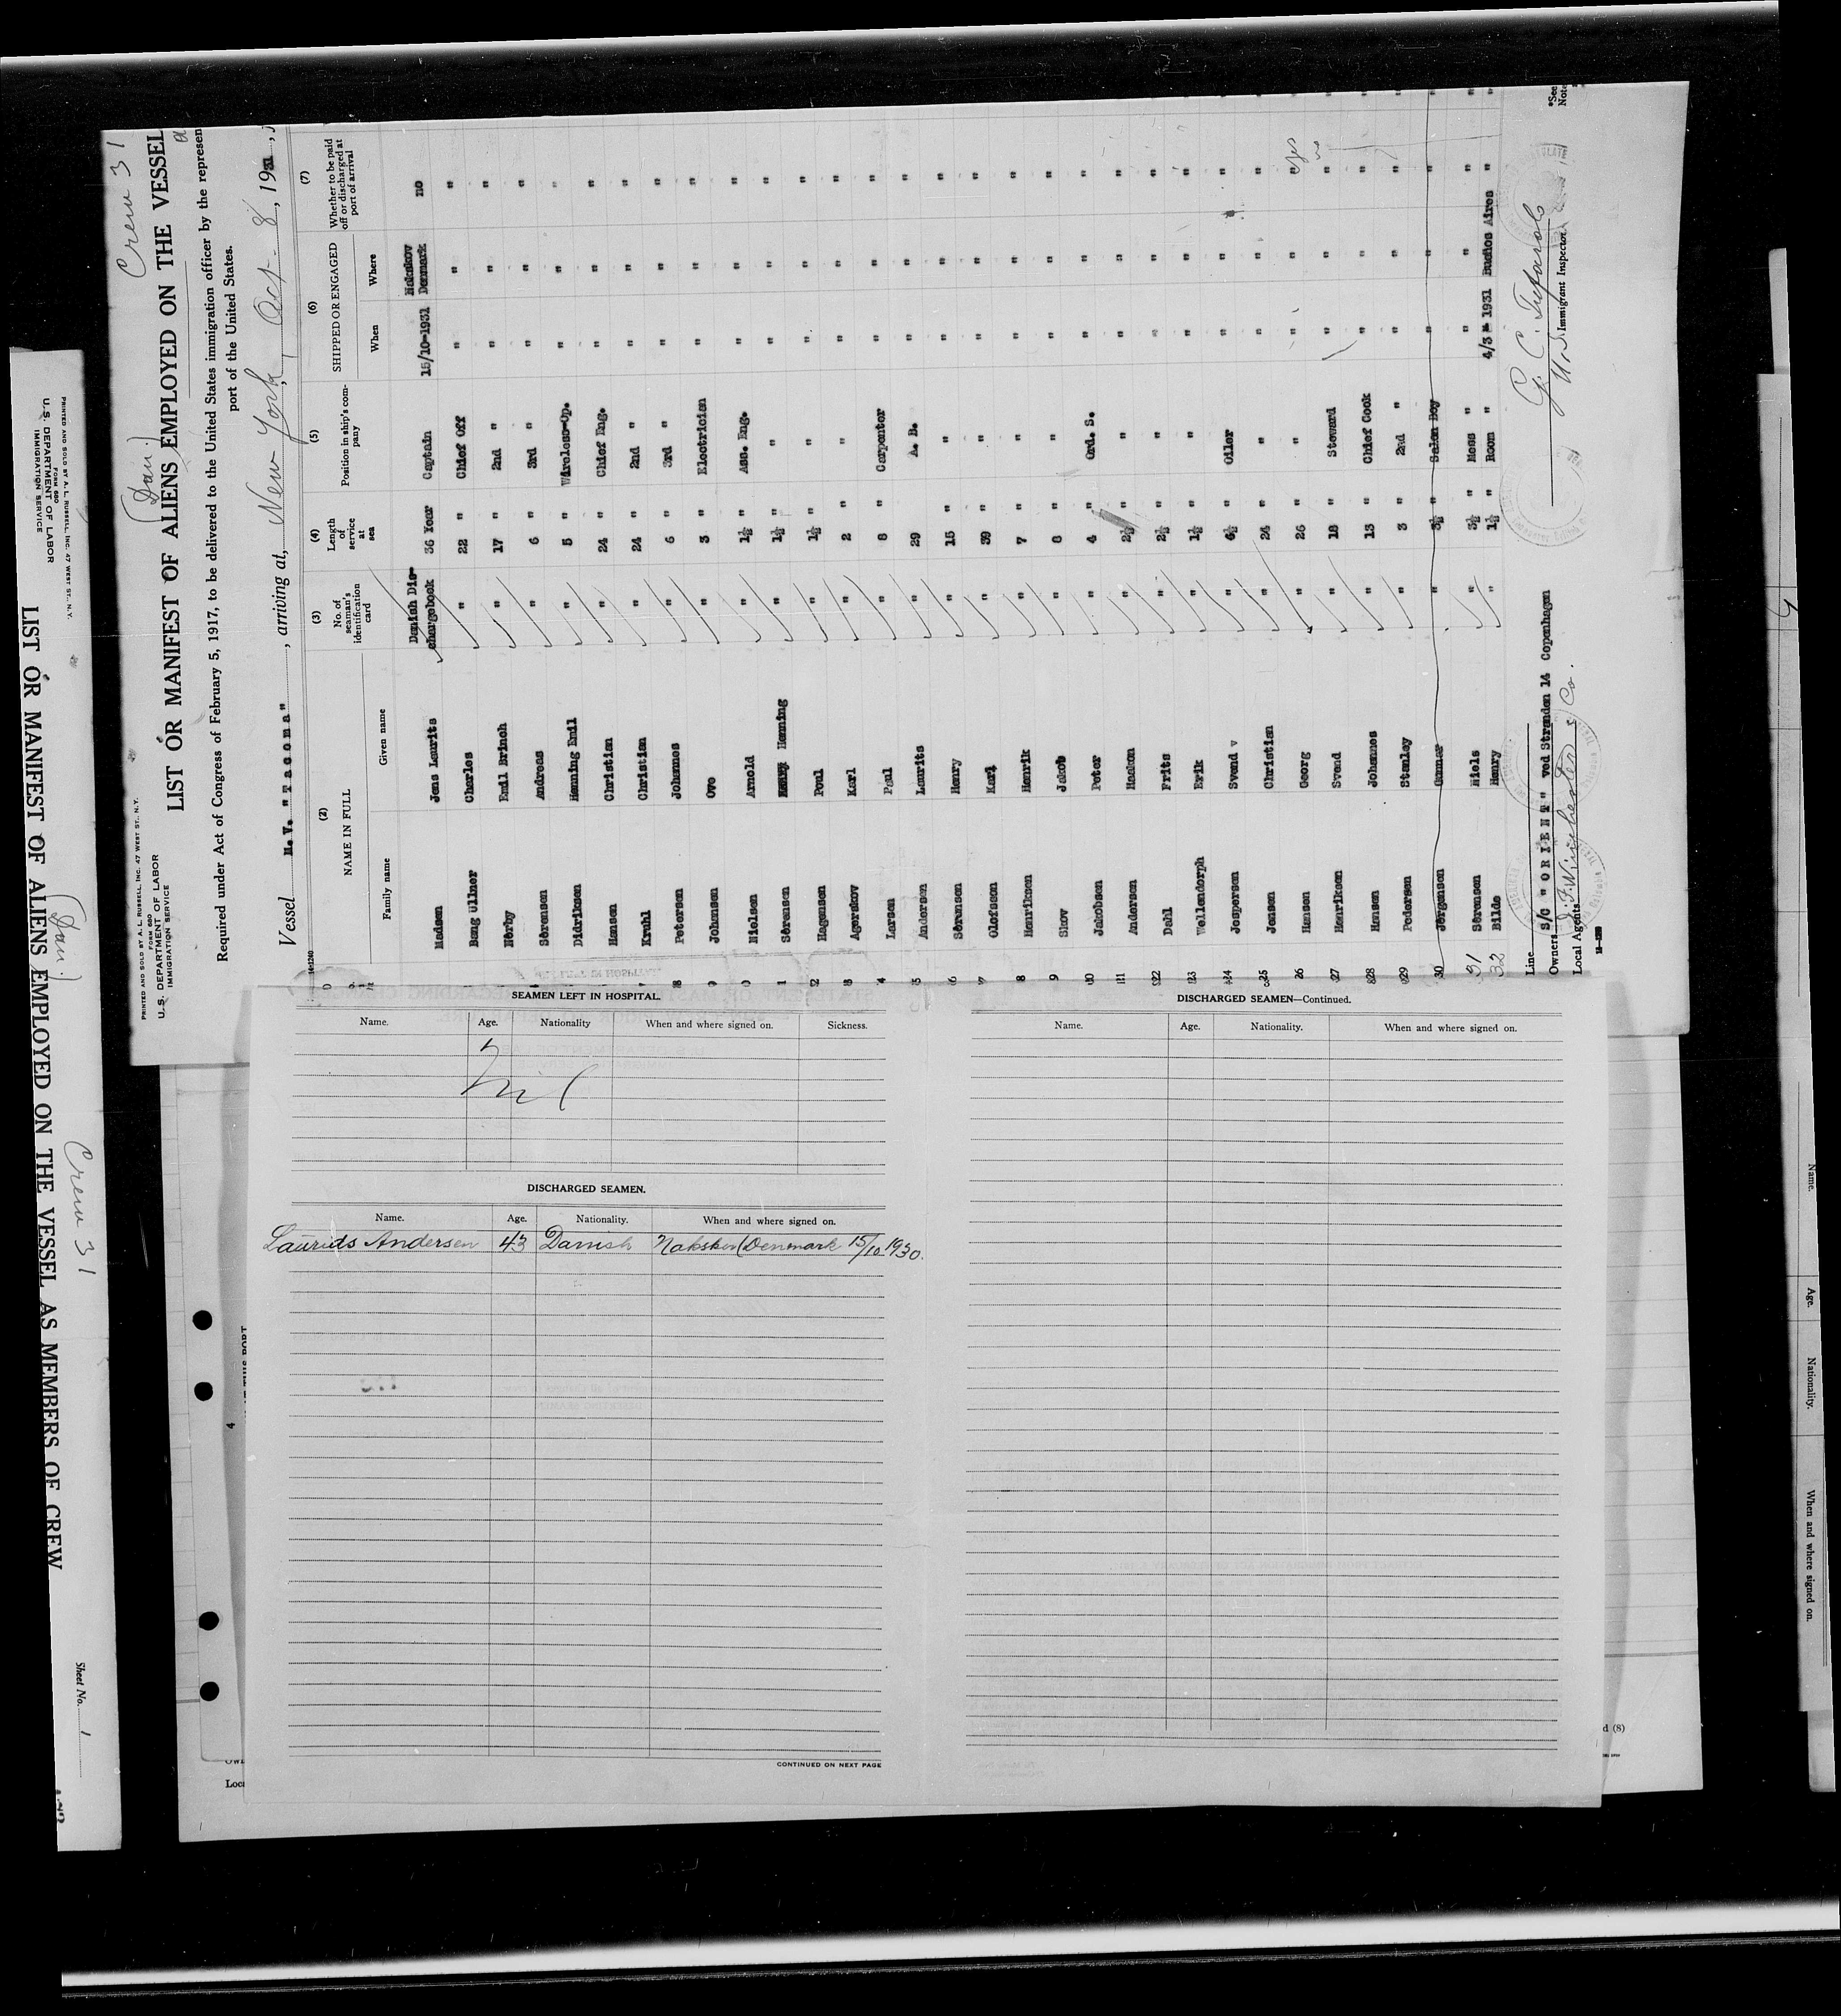 Crew 31
(Dan)
PRINTED AND SOLD BY A. L. RUSSELL, INC. 47 WEST ST., N.Y.
FORM 680
U.S. DEPARTMENT OF LABOR
IMMIGRATION SERVICE
LIST OR MANIFEST OF ALIENS EMPLOYED ON THE VESSEL
Required under Act of Congress of February 5, 1917, to be delivered to the United States immigration officer by the represen
port of the United States.
Vessel M.V. "Tacoma", arriving at, New York, Oct. 8, 1931,
(2) (3) (4) (5) (6) (7)
NAME IN FULL No. of seaman's identification card Length of service at sea Position in ship's company SHIPPED OR ENGAGED Whether to be paid off or discharged at port of arrival
Family name Given name When Where
Madsen Jens Laurits Danish Dis-chargebook 36 Year Captain 15/10-1931 Nakskov Denmark no
Bang Ullner Charles " 22 " Chief Off " " "
Nörby Emil Brinch " 17 " 2nd " " " "
Sörensen Andreas " 6 " 3rd " " " "
Didriksen Henning Emil " 5 " Wireless-Op. " " "
Hansen Christian " 24 " Chief Eng. " " "
Kruhl Christian " 24 " 2nd " " " "
8 Petersen Johannes " 6 " 3rd " " " "
9 Johansen Ove " 3 " Electrician " " "
0 Nielsen Arnold " 1½ " Ass. Eng. " " "
1 Sörensen Henning " 1½ " " " " "
2 Hagensen Poul " 1½ " " " " "
3 Agerskov Karl " 2 " " " " "
4 Larsen Paul " 8 " Carpenter " " "
5 Andersen Laurits " 29 A. B. " " "
6 Sörensen Henry " 15 " " " " "
7 Olofsson Karl " 39 " " " " "
8 Henriksen Henrik " 7 " " " " "
9 Skov Jakob " 8 " " " " "
20 Jakobsen Peter " 4 " Ord. S. " " "
21 Andersen Haakon " 2½ " " " " "
22 Dahl Frits " 2½ " " " " "
23 Wellendorph Erik " 1½ " " " " "
24 Jespersen Svend v " 6½ " Oiler " " "
25 Jensen Christian " 24 " " " " "
26 Hansen Georg " 26 " " " " " yes
27 Henriksen Svend " 18 " Steward " " " no
28 Hansen Johannes " 13 " Chief Cook " " "
29 Pedersen Stanley " 3 " 2nd " " " "
30 Jörgensen Gunnar " 3½ " Salon Boy " " "
31 Sörensen Niels " 3½ " Mess " " " "
32 Bilde Henry " 1½ " Room " 4/3 - 1931 Buenos Aires "
Line
Owners S/C "ORIENT" ved Stranden 14 Copenhagen
Local Agents J. F. Winchester & Co.
U.S. Immigrant Inspector
*See
Note
PRINTED AND SOLD BY A. L. RUSSELL, INC. 47 WEST ST., N.Y.
FORM 680
U.S. DEPARTMENT OF LABOR
IMMIGRATION SERVICE
LIST OR MANIFEST OF ALIENS EMPLOYED ON THE VESSEL AS MEMBERS OF CREW
(Dan)
Crew 31
Sheet No. 1
SEAMEN LEFT IN HOSPITAL.
Name. Age. Nationality When and where signed on. Sickness.
Nil
DISCHARGED SEAMEN.
Name. Age. Nationality. When and where signed on.
Laurids Andersen 43 Danish Nakskov (Denmark 15/10 1930.
CONTINUED ON NEXT PAGE
DISCHARGED SEAMEN—Continued.
Name. Age. Nationality. When and where signed on.
4
Name. Age. Nationality. When and where signed on.
d (8)